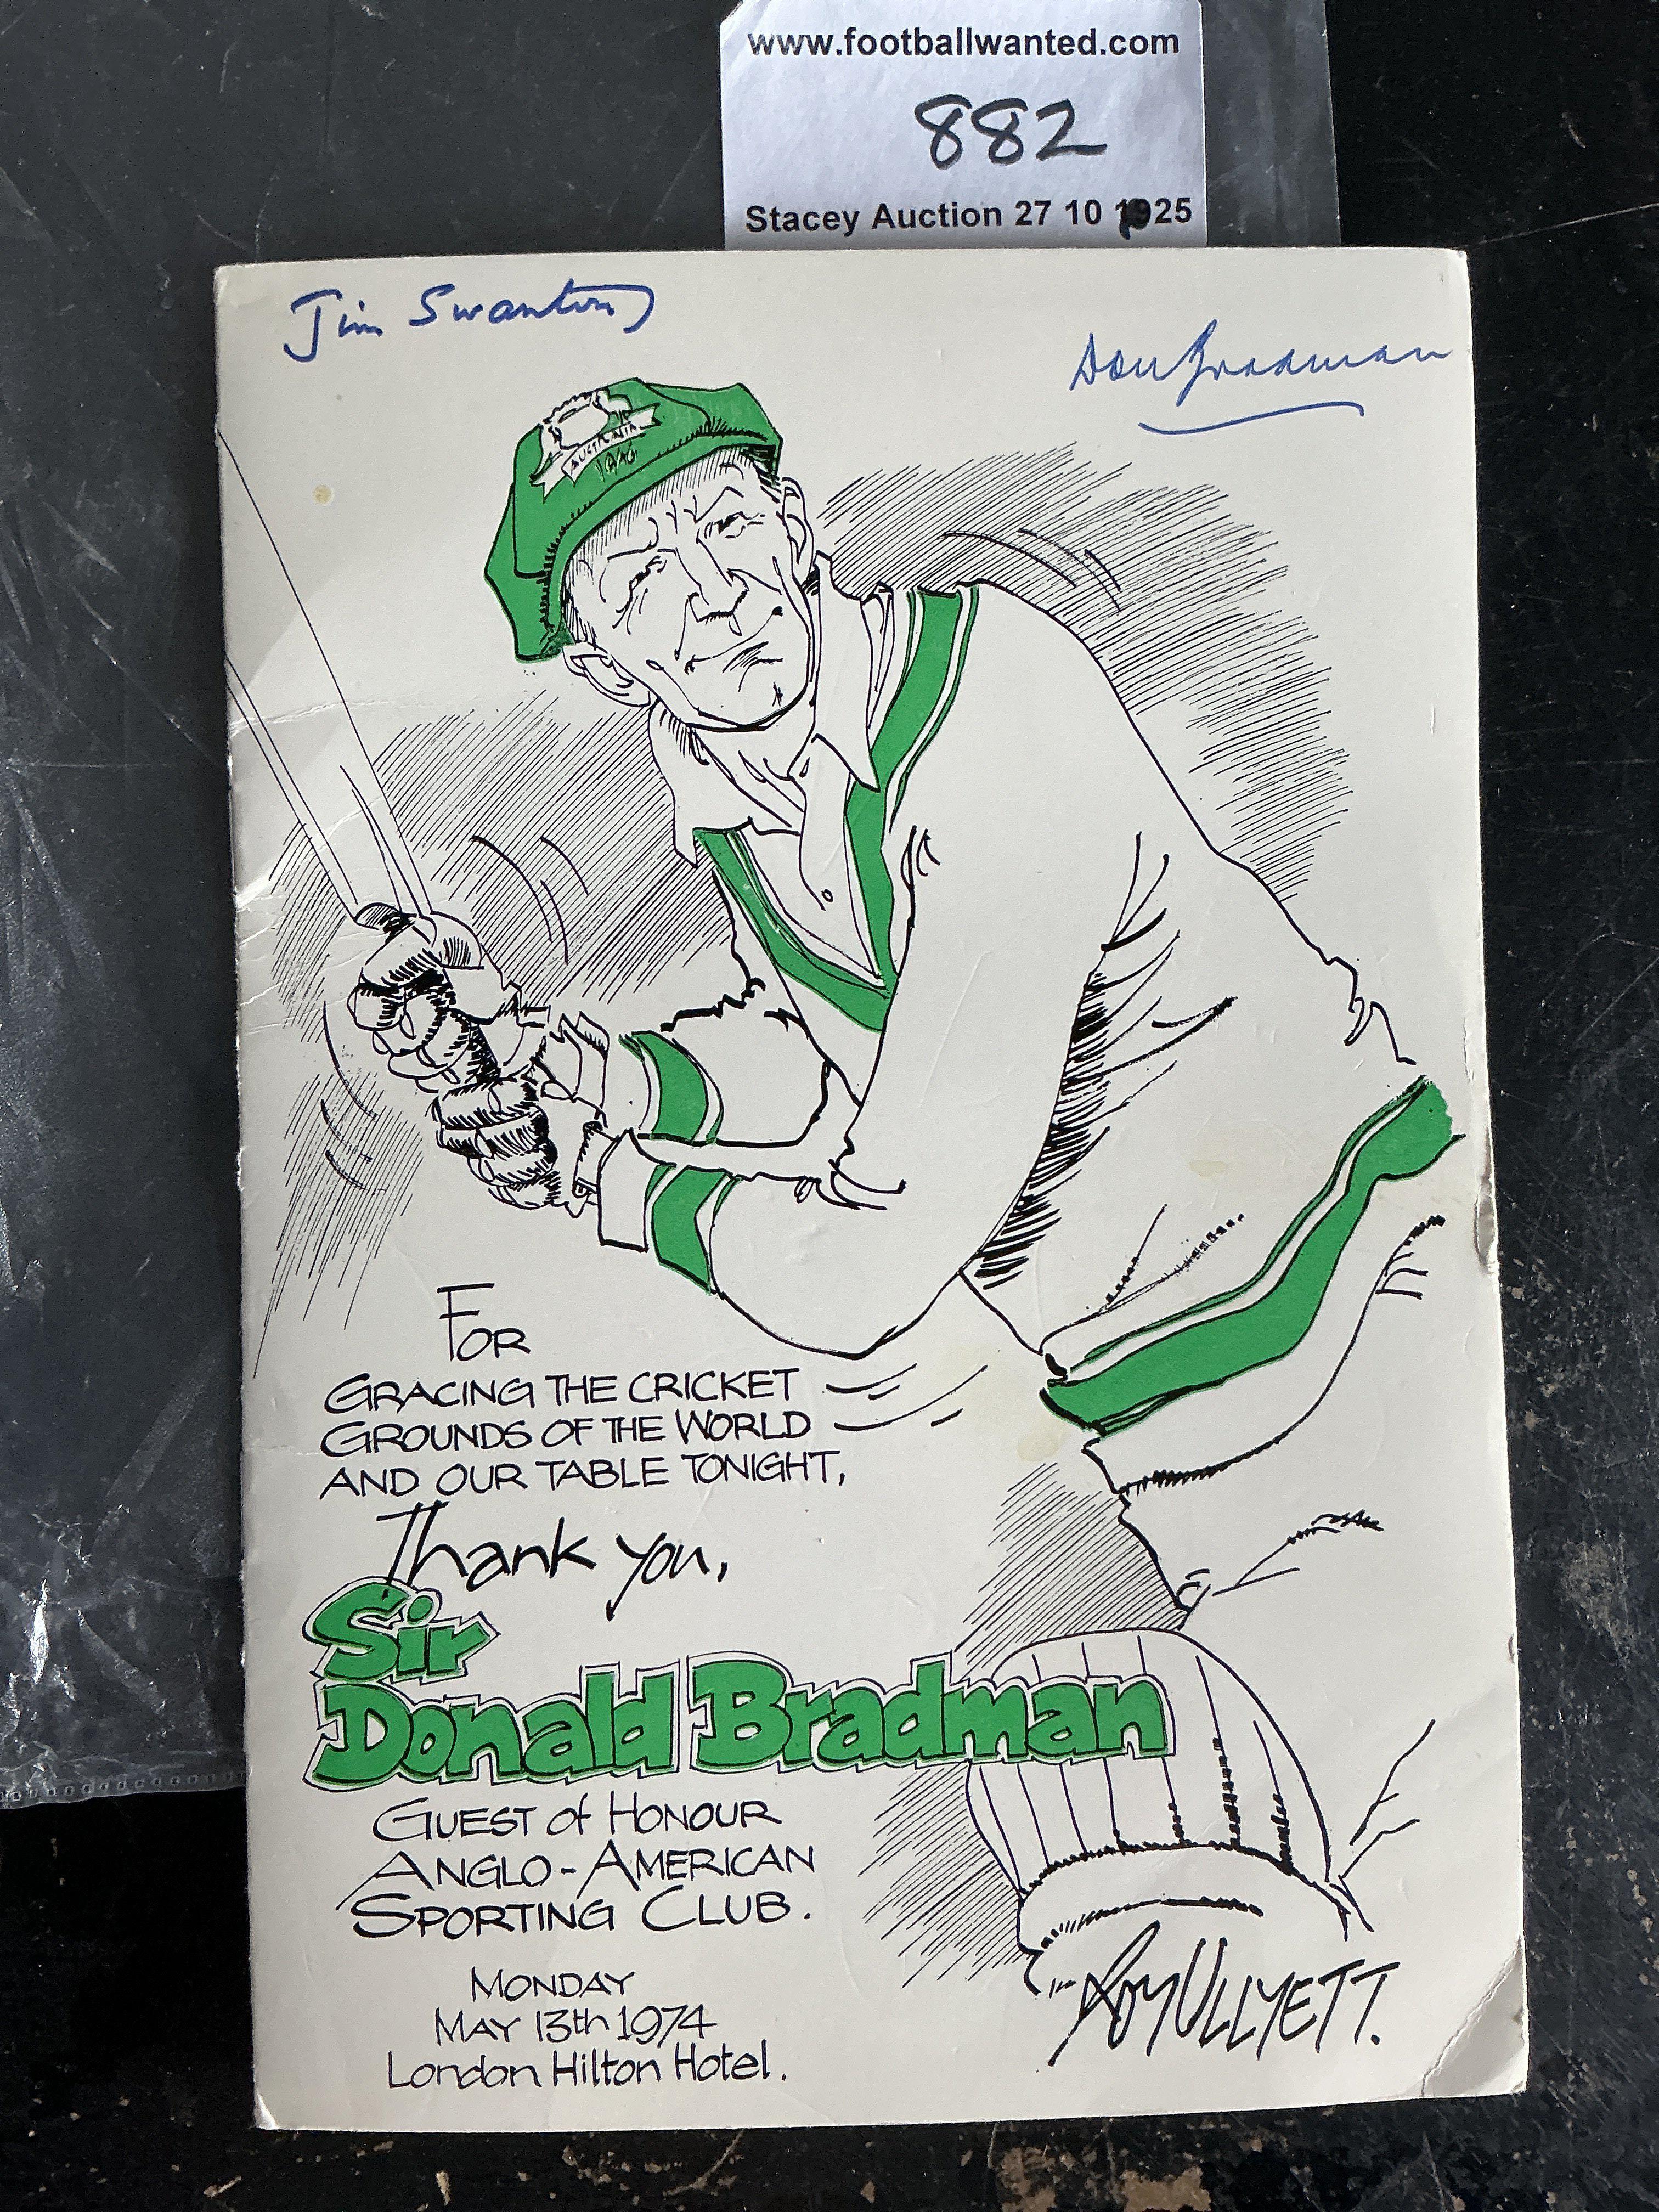 www.footballwanted.com
882
Stacey Auction 27 10 1925
Jim Swanton
Don Bradman
AUSTRALIA
FOR
GRACING THE CRICKET
GROUNDS OF THE WORLD
AND OUR TABLE TONIGHT,
Thank you,
Sir
Donald Bradman
GUEST of HONOUR
ANGLO-AMERICAN
SPORTING CLUB.
MONDAY
MAY 13th 1974
London Hilton Hotel.
ROY ULLYETT.